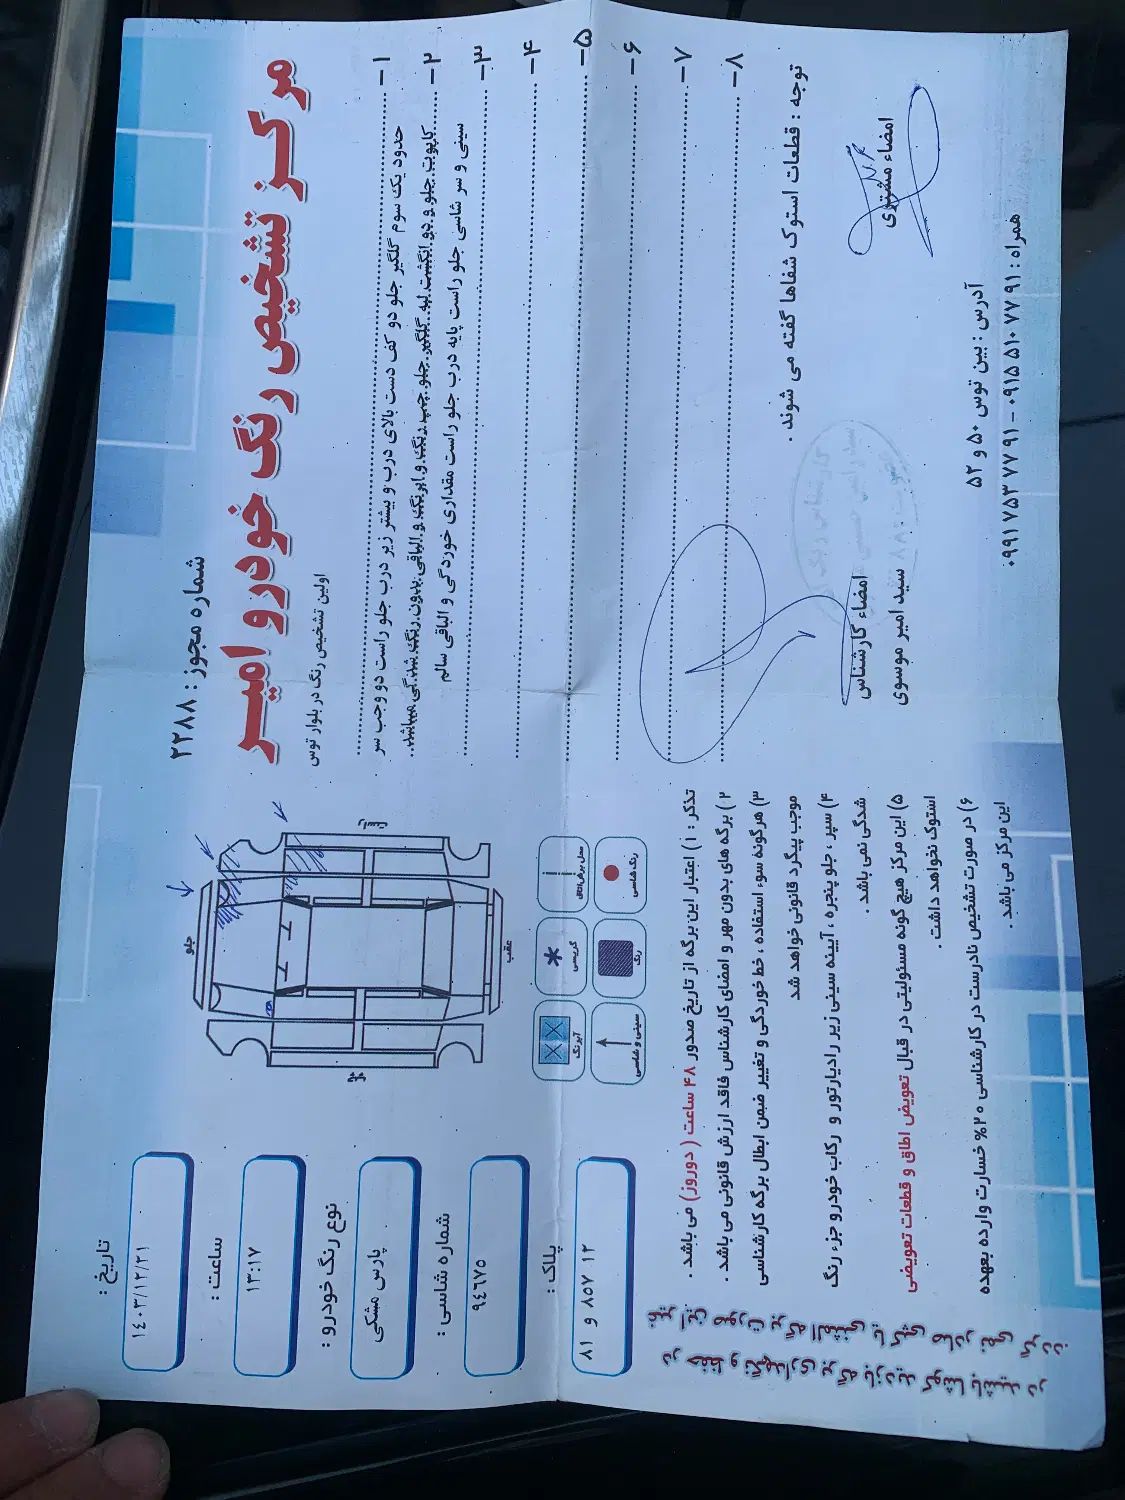 شماره مجوز : ۲۲۸۸
مرکز تشخیص رنگ خودرو امیر
اولین تشخیص رنگ در بلوار توس
تاریخ :
۱٤۰۳/۱۲/۲۱
ساعت :
۱۳:۱۷
نوع رنگ خودرو :
پارس مشکی
شماره شاسی :
۹٤٦۷۵
پلاک :
۱۲ ۸۵۷ و ۸۱
جلو
راست
عقب
چپ
محل برش اتاق
گریسی
آبرنگ
رنگ شاسی
رنگ
سینی و شاسی
۱ –
حدود یک سوم گلگیر جلو دو کف دست بالای درب و بیشتر زیر درب جلو راست دو وجب سر
۲ –
کاپوت جلو و دو انگشت لبه گلگیر جلو چپ رنگ و ابرنگ و الباقی بدون رنگ شدگی میباشد.
۳ –
سینی و سر شاسی جلو راست پایه درب جلو راست مقداری خوردگی و الباقی سالم
۴ –
۵ –
۶ –
۷ –
۸ –
توجه : قطعات استوک شفاها گفته می شوند .
امضاء مشتری
امضاء کارشناس
سید امیر موسوی
تذکر : ۱) اعتبار این برگه از تاریخ صدور ۴۸ ساعت ( دوروز) می باشد .
۲) برگه های بدون مهر و امضای کارشناس فاقد ارزش قانونی می باشد .
۳) هرگونه سوء استفاده ، خط خوردگی و تغییر ضمن ابطال برگه کارشناسی
موجب پیگرد قانونی خواهد شد
۴) سپر ، جلو پنجره ، آیینه سینی زیر رادیاتور و رکاب خودرو جزء رنگ
شدگی نمی باشد .
۵) این مرکز هیچ گونه مسئولیتی در قبال تعویض اطاق و قطعات تعویضی
استوک نخواهد داشت .
۶) در صورت تشخیص نادرست در کارشناسی ۲۰% خسارت وارده بعهده
این مرکز می باشد .
آدرس : بین توس ۵۰ و ۵۲
همراه : ۰۹۱۵۵۱۰۷۷۹۱ – ۰۹۹۱۷۵۳۷۷۹۱
در حفظ و نگهداری برگه بازدید کوشا باشید در
غیر این صورت برگه المثنی یا کپی صادر نمی گردد.